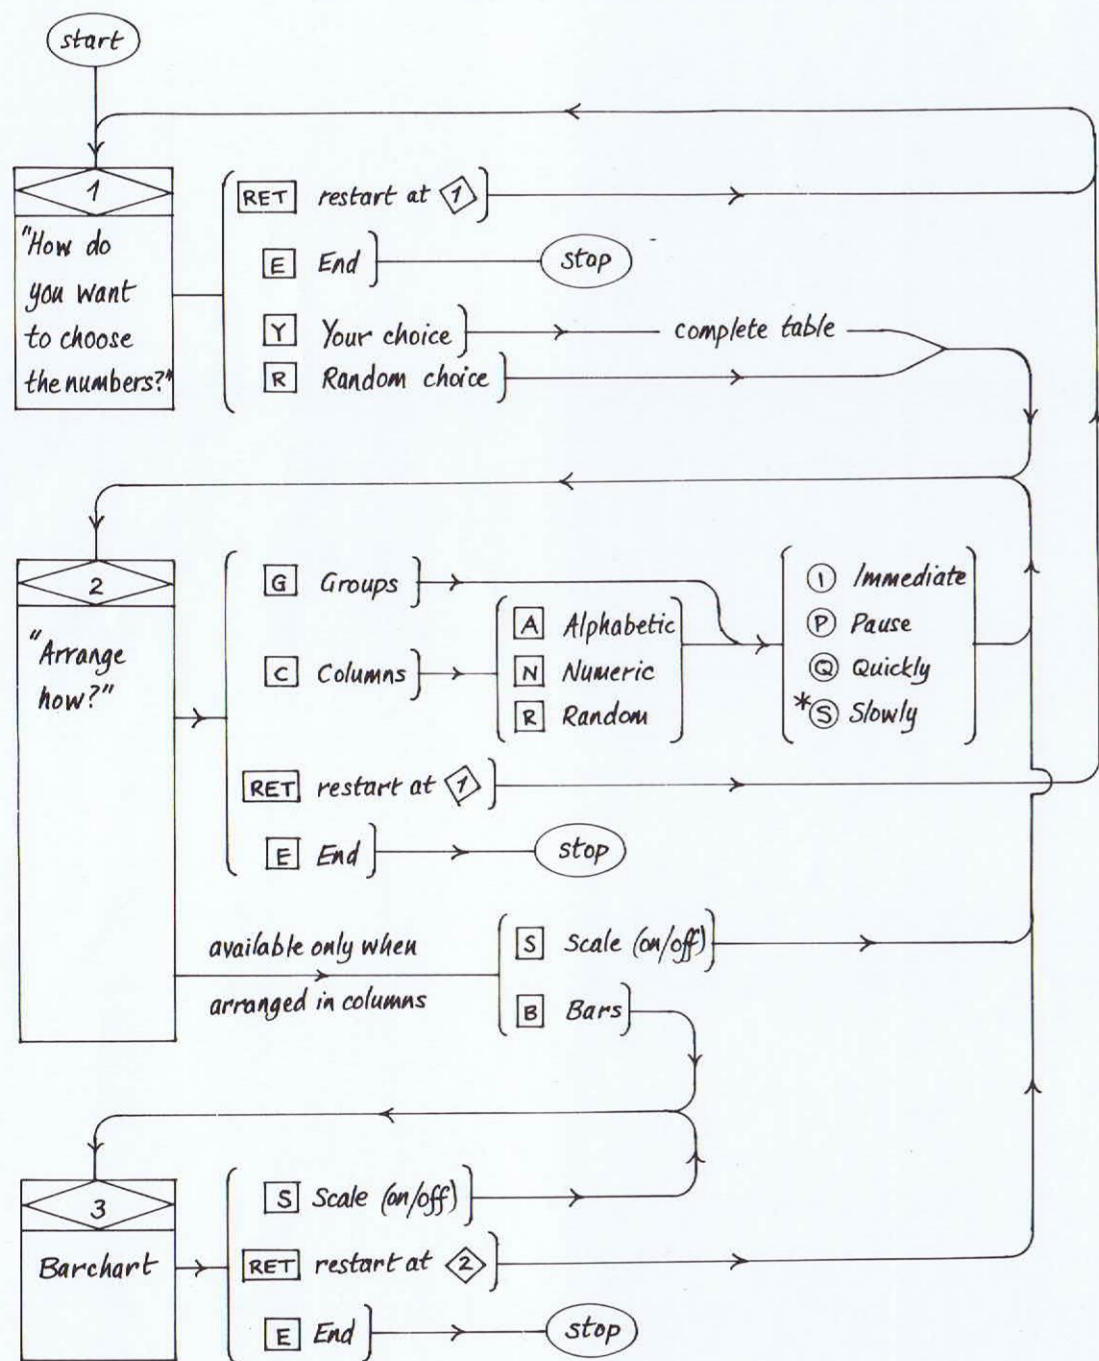 start
1
"How do
you want
to choose
the numbers?"
RET restart at 1
E End stop
Y Your choice complete table
R Random choice
2
"Arrange
how?"
G Groups
C Columns
A Alphabetic
N Numeric
R Random
I Immediate
P Pause
Q Quickly
*S Slowly
RET restart at 1
E End stop
available only when
arranged in columns
S Scale (on/off)
B Bars
3
Barchart
S Scale (on/off)
RET restart at 2
E End stop